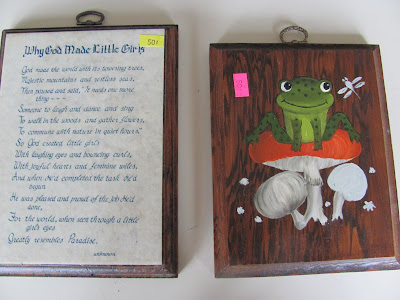 Why God Made Little Girls
50¢
God made the world with its towering trees,
Majestic mountains and restless seas,
Then paused and said, "It needs one more
thing---
Someone to laugh and dance and sing
To walk in the woods and gather flowers,
To commune with nature in quiet hours."
So God created little girls
With laughing eyes and bouncing curls,
With joyful hearts and feminine wiles,
And when He'd completed the task He'd
begun
He was pleased and proud of the job He'd
done,
For the world, when seen through a little
girl's eyes
Greatly resembles Paradise.
unknown